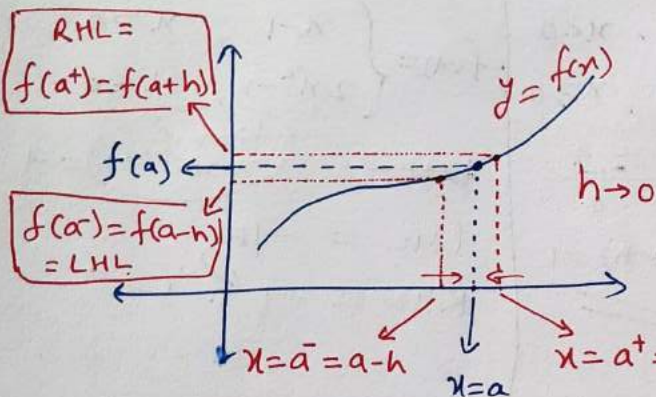 RHL =
f(a⁺) = f(a+h)
y = f(x)
f(a)
h→0
f(a⁻) = f(a-h)
= LHL
x = a⁻ = a-h
x = a⁺ =
x = a